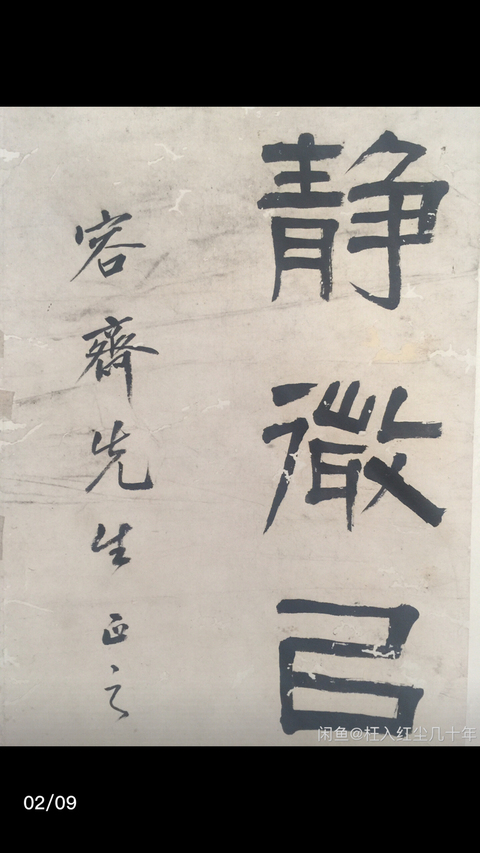 静微己
容齋先生正之
闲鱼@枉入红尘几十年
02/09